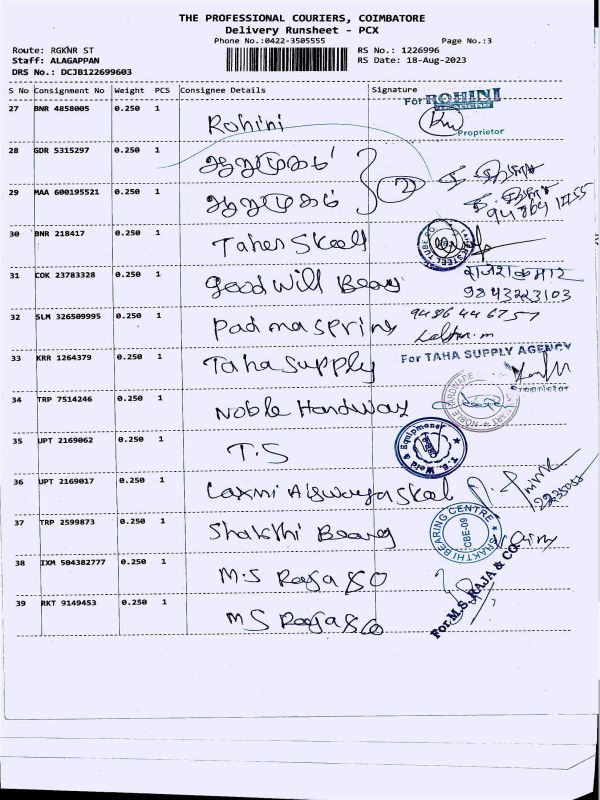 THE PROFESSIONAL COURIERS, COIMBATORE
Delivery Runsheet - PCX
Phone No.:0422-3505555 Page No.:3
Route: RGKNR ST RS No.: 1226996
Staff: ALAGAPPAN RS Date: 18-Aug-2023
DRS No.: DCJB122699603
S No Consignment No Weight PCS Consignee Details Signature
27 BNR 4858005 0.250 1 Rohini For ROHINI
Proprietor
28 GDR 5315297 0.250 1 ஆறுமுகம்
29 MAA 600195521 0.250 1 ஆறுமுகம்
30 BNR 218417 0.250 1 Taher Skeel
31 COK 23783328 0.250 1 Good Will Beary ராஜேஷ்குமார்
9843223103
32 SLM 326509995 0.250 1 Padma spring 9486446757
33 KRR 1264379 0.250 1 Taha Supply For TAHA SUPPLY AGENCY
Proprietor
34 TRP 7514246 0.250 1 Noble Hardway
35 UPT 2169062 0.250 1 T.S
36 UPT 2169017 0.250 1 Laxmi Skeel
37 TRP 2599873 0.250 1 Shakthi Bearg SHAKTHI BEARING CENTRE CBE-09
38 IXM 504382777 0.250 1 M.S Raja & Co
39 RKT 9149453 0.250 1 M S Raja & Co For M.S. RAJA & CO.